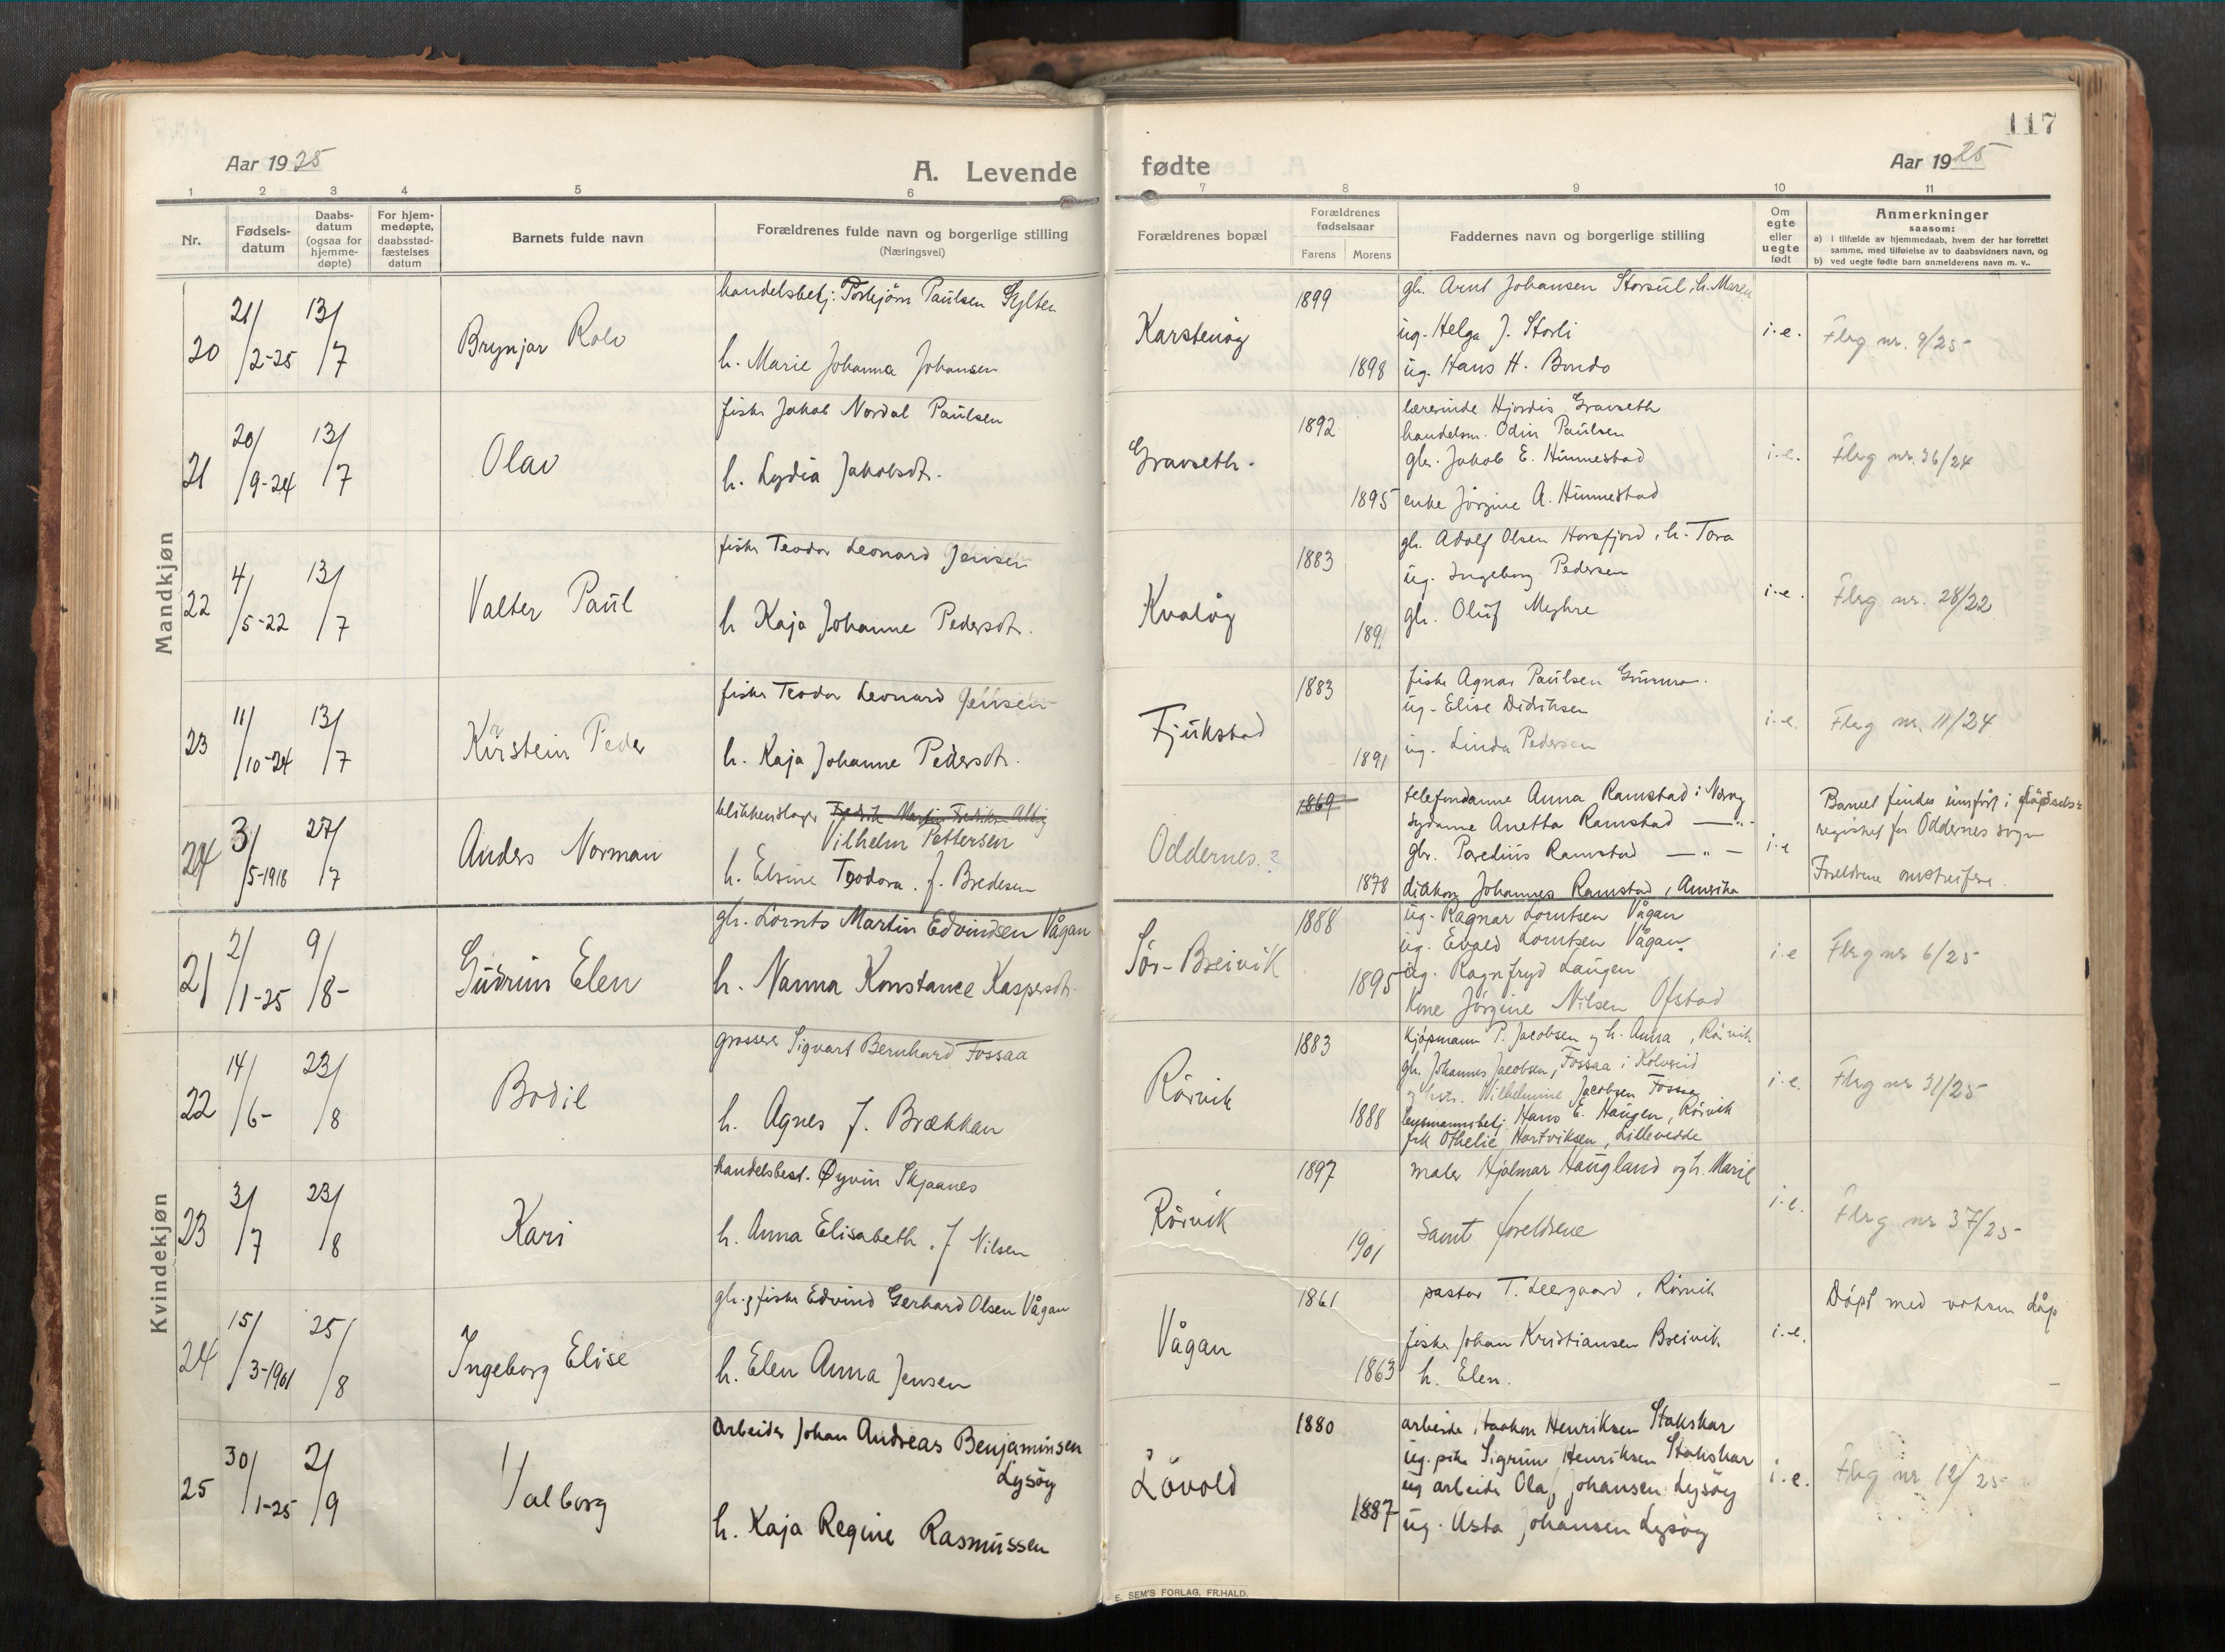 117
Aar 1925
A. Levende
fødte
Aar 1925
1 2 3 4 5 6 7 8 9 10 11
Nr.
Fødsels-
datum
Daabs-
datum
(ogsaa for
hjemme-
døpte)
For hjem-
medøpte,
daabsstad-
fæstelses
datum
Barnets fulde navn
Forældrenes fulde navn og borgerlige stilling
(Næringsvei)
Forældrenes bopæl
Forældrenes
fødselsaar
Farens Morens
Faddernes navn og borgerlige stilling
Om
egte
eller
uegte
født
Anmerkninger
saasom:
a) i tilfælde av hjemmedaab, hvem der har forrettet
samme, med tilføielse av to daabsvidners navn, og
b) ved uegte fødte barn anmelderens navn m. v..
Mandkjøn
20 21/2-25 13/7 Brynjar Rolv
handelsbetj. Torbjörn Paulsen Sylten
h. Marie Johanna Johansen
Karstenöy 1899 1898
gb. Arnt Johansen Storsul, h. Maren
ug. Helga J. Storli
ug. Hans H. Bondo
i.e. Flrg nr. 9/25
21 20/9-24 13/7 Olav
fisker Jakob Nordal Paulsen
h. Lydia Jakobsdtr.
Gravseth. 1892 1895
lærerinde Hjordis Gravseth
handelsm. Odin Paulsen
gbr. Jakob E. Himmestad
enke Jörgine A. Himmestad
i.e. Flrg nr. 36/24
22 4/5-22 13/7 Valter Paul
fisker Teodor Leonard Jensen
h Kaja Johanne Pedersdtr.
Kvalöy 1883 1891
gb. Adolf Olsen Horsfjord, h. Tora
ug. Ingeborg Pedersen
gb. Oluf
i.e. Flrg nr. 28/22
23 11/10-24 13/7 Kirstein Peder
fisker Teodor Leonard Jensen
h. Kaja Johanne Pedersdtr.
Fjukstad 1883 1891
fisker Agnar Paulsen
ug. Elise Didriksen
ug. Linda Pedersen
i.e. Flrg nr. 11/24
24 3/5-1918 27/7 Anders Norman
blikkenslager Fredrik Martin Fredriksen
Vilhelm Pettersen
h. Elsine Teodora. f. Bredesen
Oddernes.? 1869 1878
telefondame Anna Ramstad i
sydame Anetta Ramstad — " -
gbr. Paredius Ramstad — " —
diakon Johannes Ramstad, Amerika
i.e
Barnet findes innfört i födsels=
registret for Oddernes sogn
Foreldrene omstreifere.
Kvindekjøn
21 2/1-25 9/8- Gudrun Elen
gb. Lornts Martin Edvindsen Vågan
h. Nanna Konstance Kaspersdtr.
Sör-Breivik 1888 1895
ug. Ragnar Lorntsen Vågan
ug. Evald Lorntsen Vågan.
ug. Ragnfryd Laugen
Kone Jörgine Nilsen Ofstad
i.e Flrg nr 6/25
22 14/6- 23/8 Bodil
grosserer Sigvart Bernhard Fossaa
h. Agnes f. Brækkan
Rörvik 1883 1888
Kjøpmann P. Jacobsen og h. Anna, Rörvik
gb. Johannes Jacobsen, Fossaa i Kolvereid
og hstr. Wilhelmine Jacobsen Fossaa
lensmannsbetj. Hans E. Haugen, Rörvik
frk Othelie Hartviksen,
i.e. Flrg nr 31/25
23 3/7 23/8 Kari
handelsbest. Øyvin Skjaanes
h. Anna Elisabeth. f Nilsen
Rörvik 1897 1901
maler Hjalmar Haugland og h. Marie
Samt foreldrene
i.e. Flrg nr 37/25
24 15/3-1901 25/8 Ingeborg Elise
gb. og fisker Edvind Gerhard Olsen Vågan
h. Elen Anna Jensen
Vågan 1861 1863
pastor T. Leegaard, Rörvik
fisker Johan Kristiansen Breivik
h. Elen.
i.e. Döpt med voksen dåp
25 30/1-25 2/9 Valborg
arbeider Johan Andreas Benjaminsen
Lysöy
h. Kaja Regine Rasmussen
Lövold 1880 1887
arbeider Haakon Henriksen Stokskar
ug. pike Sigrun Henriksen Stokskar
ug arbeider Olaf Johansen Lysöy
ug. Asta Johansen Lysöy
i.e. Flrg nr 12/25
E. SEM'S FORLAG. FR.HALD.